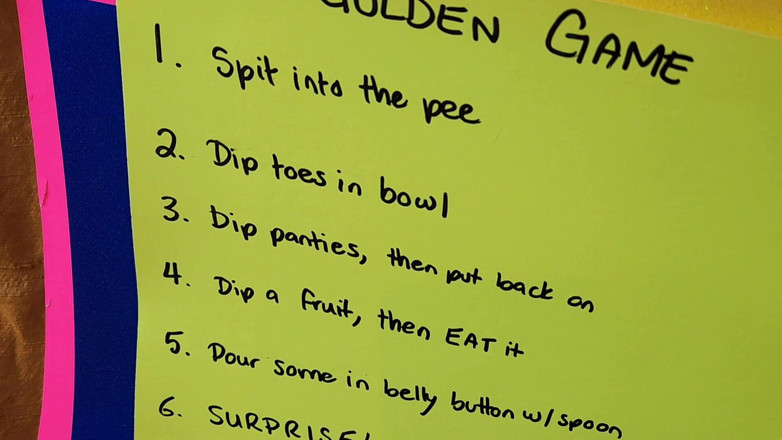 GOLDEN GAME
1. Spit into the pee
2. Dip toes in bowl
3. Dip panties, then put back on
4. Dip a fruit, then EAT it
5. Pour some in belly button w/spoon
6. SURPRISE!